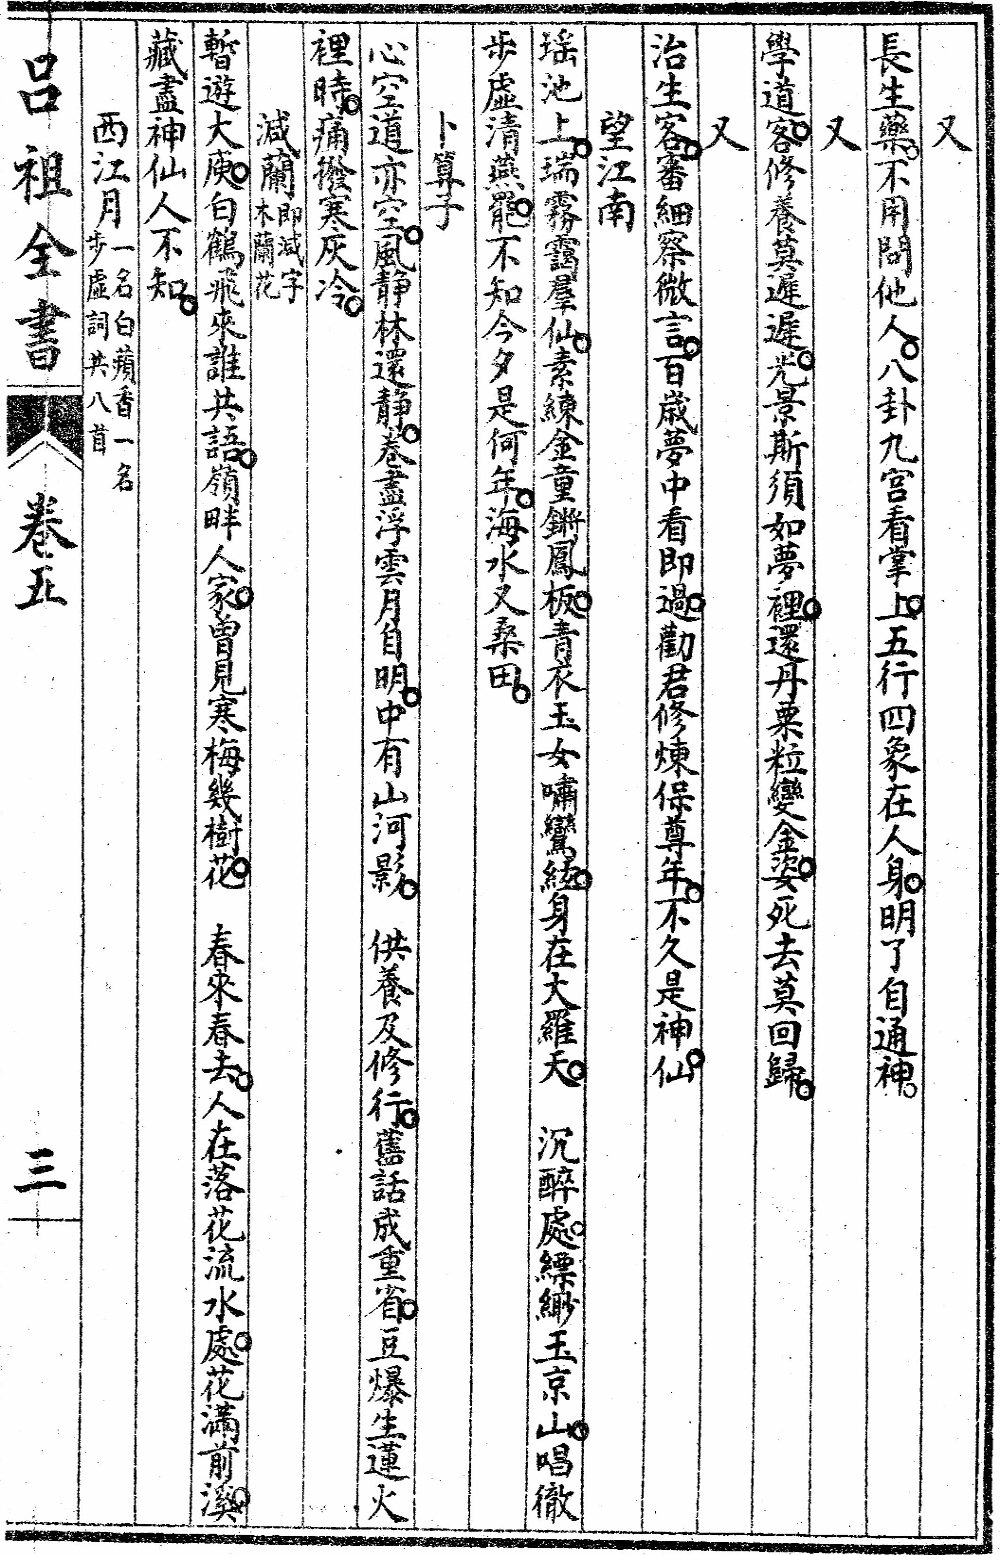 又
長生藥不用問他人八卦九宮看掌上五行四象在人身明了自通神
又
學道客修養莫遲遲光景斯須如夢裡還丹粟粒變金姿死去莫回歸
又
治生客審細察微言百歲夢中看即過勸君修煉保尊年不久是神仙
望江南
瑶池上瑞霧靄羣仙素練金童鏘鳳板青衣玉女嘯鸞絃身在大羅天　沉醉處縹緲玉京山唱徹
步虛清燕罷不知今夕是何年海水又桑田
卜算子
心空道亦空風静林還静卷盡浮雲月自明中有山河影　供養及修行舊話成重省豆爆生蓮火
裡時痛撥寒灰冷
減蘭即減字木蘭花
暫遊大庾白鶴飛來誰共語嶺畔人家曾見寒梅幾樹花　春來春去人在落花流水處花滿前溪
藏盡神仙人不知
西江月一名白蘋香一名步虛詞共八首
呂祖全書　卷五　三